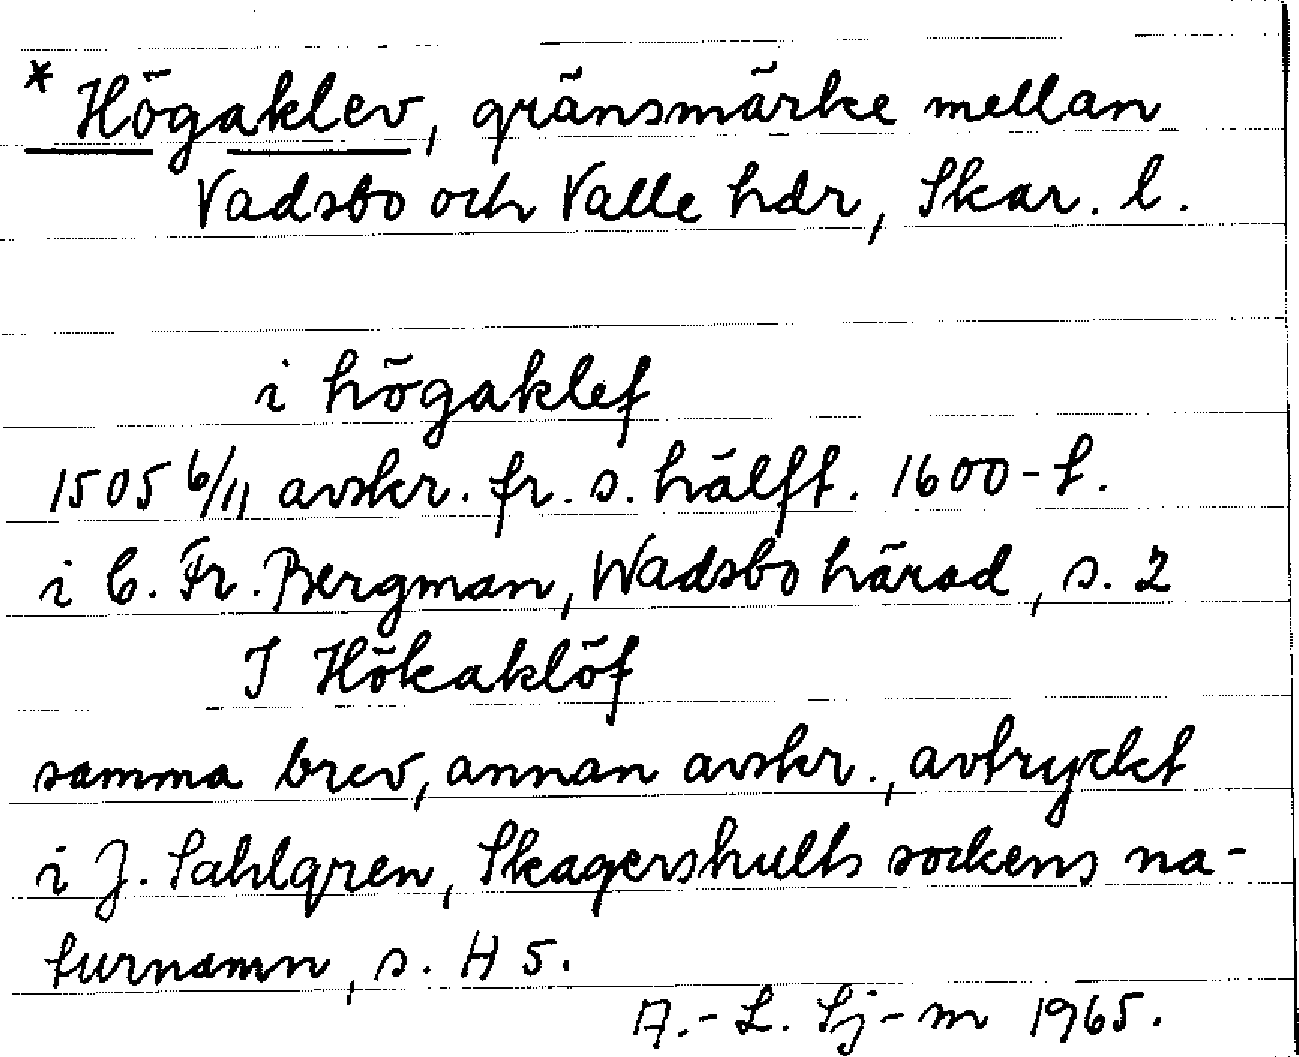 * Högaklev, gränsmärke mellan
Vadsbo och Valle hdr, Skar. l.
i högaklef
1505 6/11 avskr. fr. s. hälft. 1600-t.
i C. Fr. Bergman, Wadsbo härad, s. 2
I Hökaklöf
samma brev, annan avskr., avtryckt
i J. Sahlgren, Skagershults sockens na-
turnamn, s. H 5.
A.-L. Sj-m 1965.